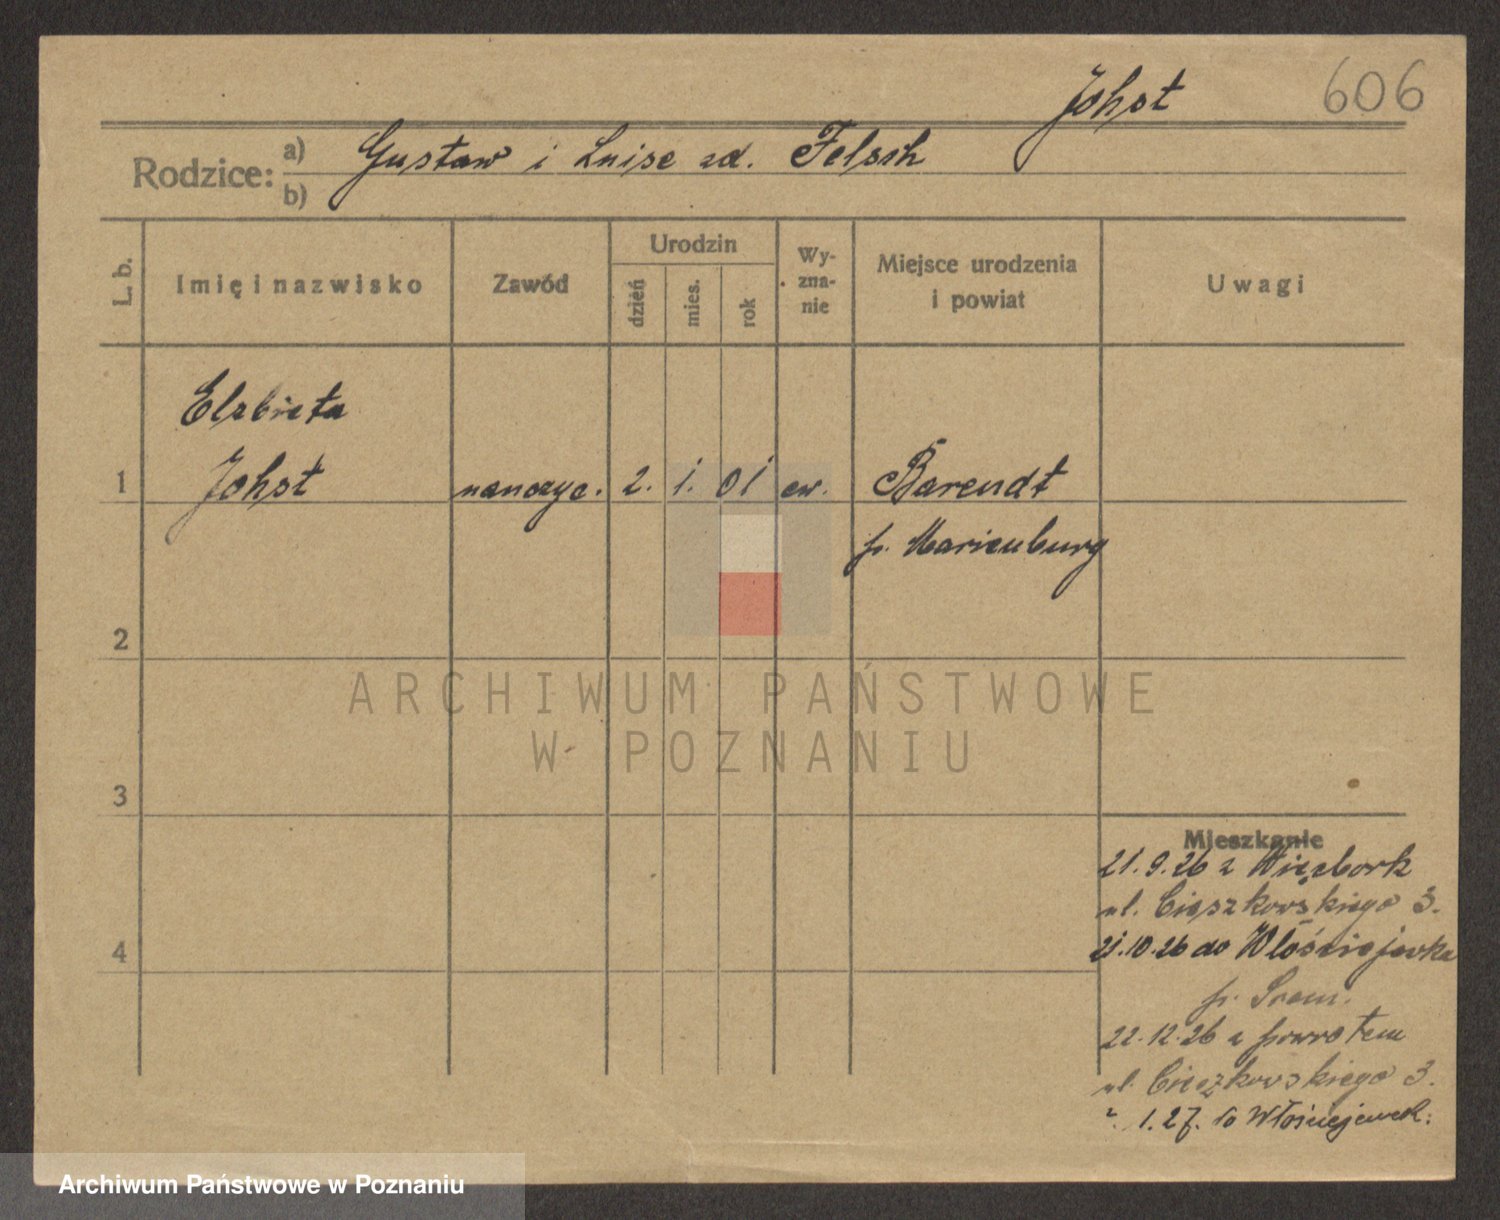 Johst
606
Rodzice:
a) Gustaw i Luise zd. Felsch
b)
L. b.
Imię i nazwisko
Zawód
Urodzin
dzień
mies.
rok
Wy-
zna-
nie
Miejsce urodzenia
i powiat
Uwagi
Elzbieta
1 Johst nauczyc. 2. 1. 01 ew. Barendt
p. Marienburg
2
3
4
Mieszkanie
21.9.26 z Więcbork
ul. Cieszkowskiego 3.
21.10.26 do Włościejewka
p. Srem.
22.12.26 z powrotem
ul. Cieszkowskiego 3.
1.27. do Włościejewek:
ARCHIWUM PAŃSTWOWE
W POZNANIU
Archiwum Państwowe w Poznaniu